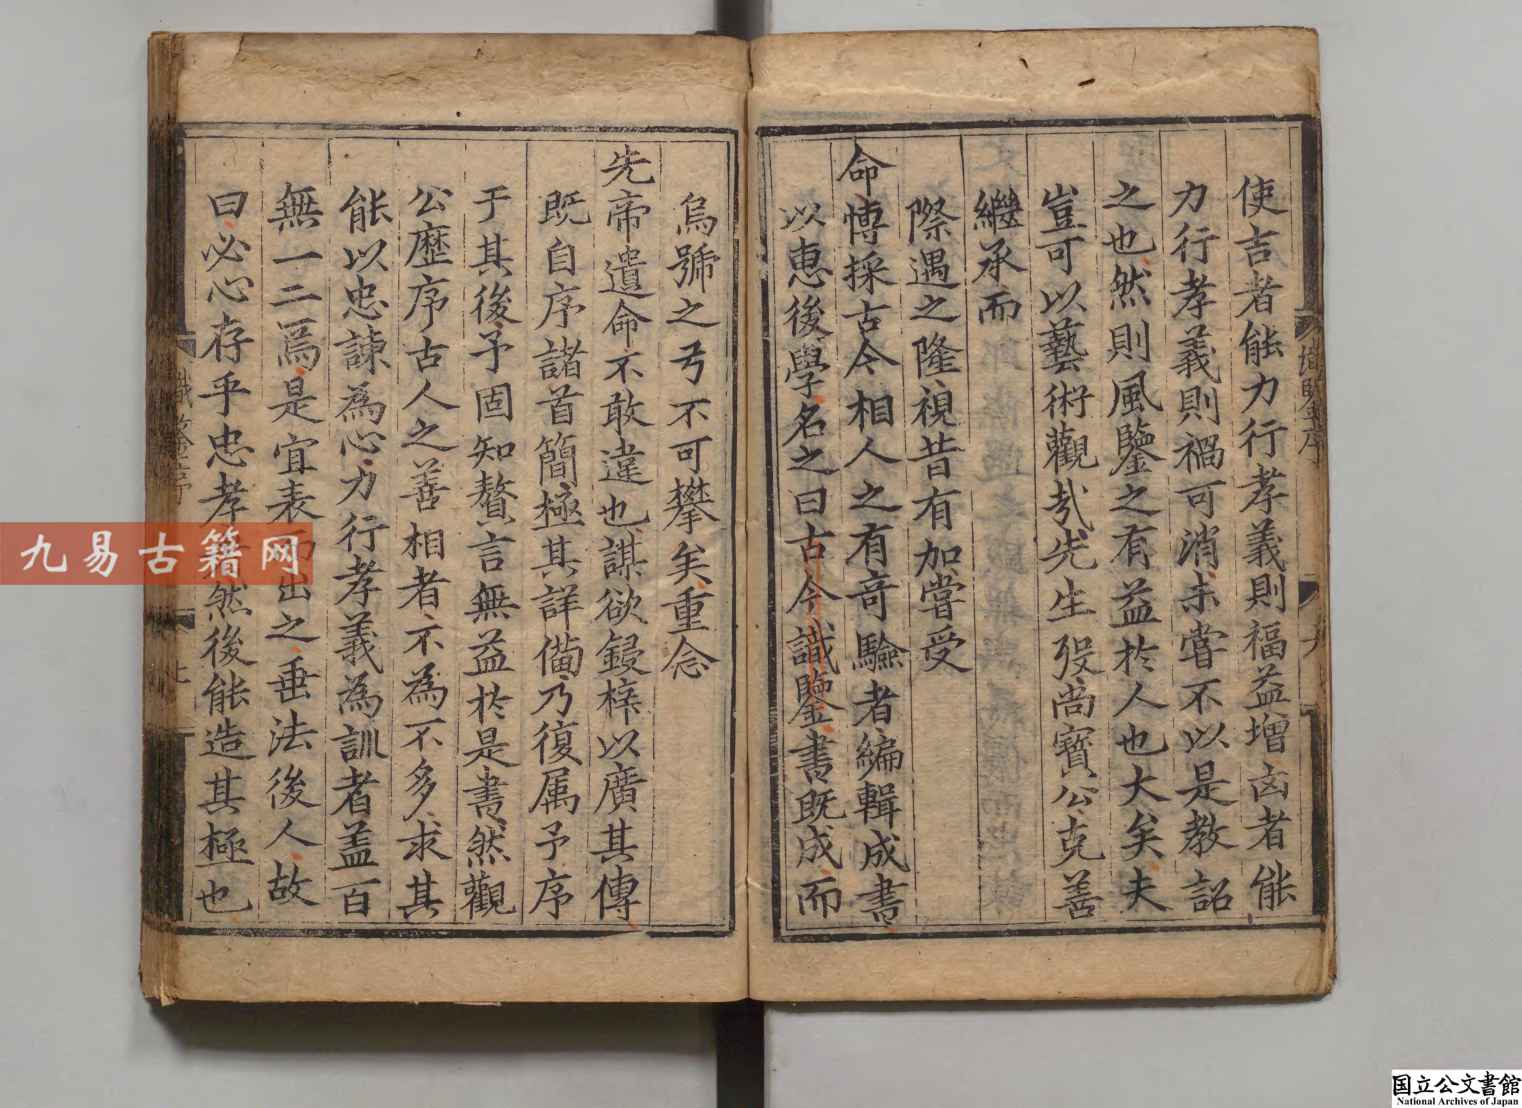 使吉者能力行孝義則福益増凶者能
力行孝義則禍可消未嘗不以是教詔
之也然則風鑒之有益於人也大矣夫
豈可以藝術觀㢤先生歿尚寶公克善
繼承而
際遇之隆視昔有加嘗受
命愽採古今相人之有竒驗者編輯成書
以惠後學名之曰古今識鑒書既成而
烏號之弓不可攀矣重念
先帝遺命不敢違也謀欲鋟梓以廣其傳
既自序諸首簡極其詳備乃復属予序
于其後予固知贅言無益於是書然觀
公歷序古人之善相者不為不多求其
能以忠諫為心力行孝義為訓者盖百
無一二焉是宜表而出之垂法後人故
曰必心存乎忠孝然後能造其極也
識鑒序
九易古籍网
国立公文書館
National Archives of Japan